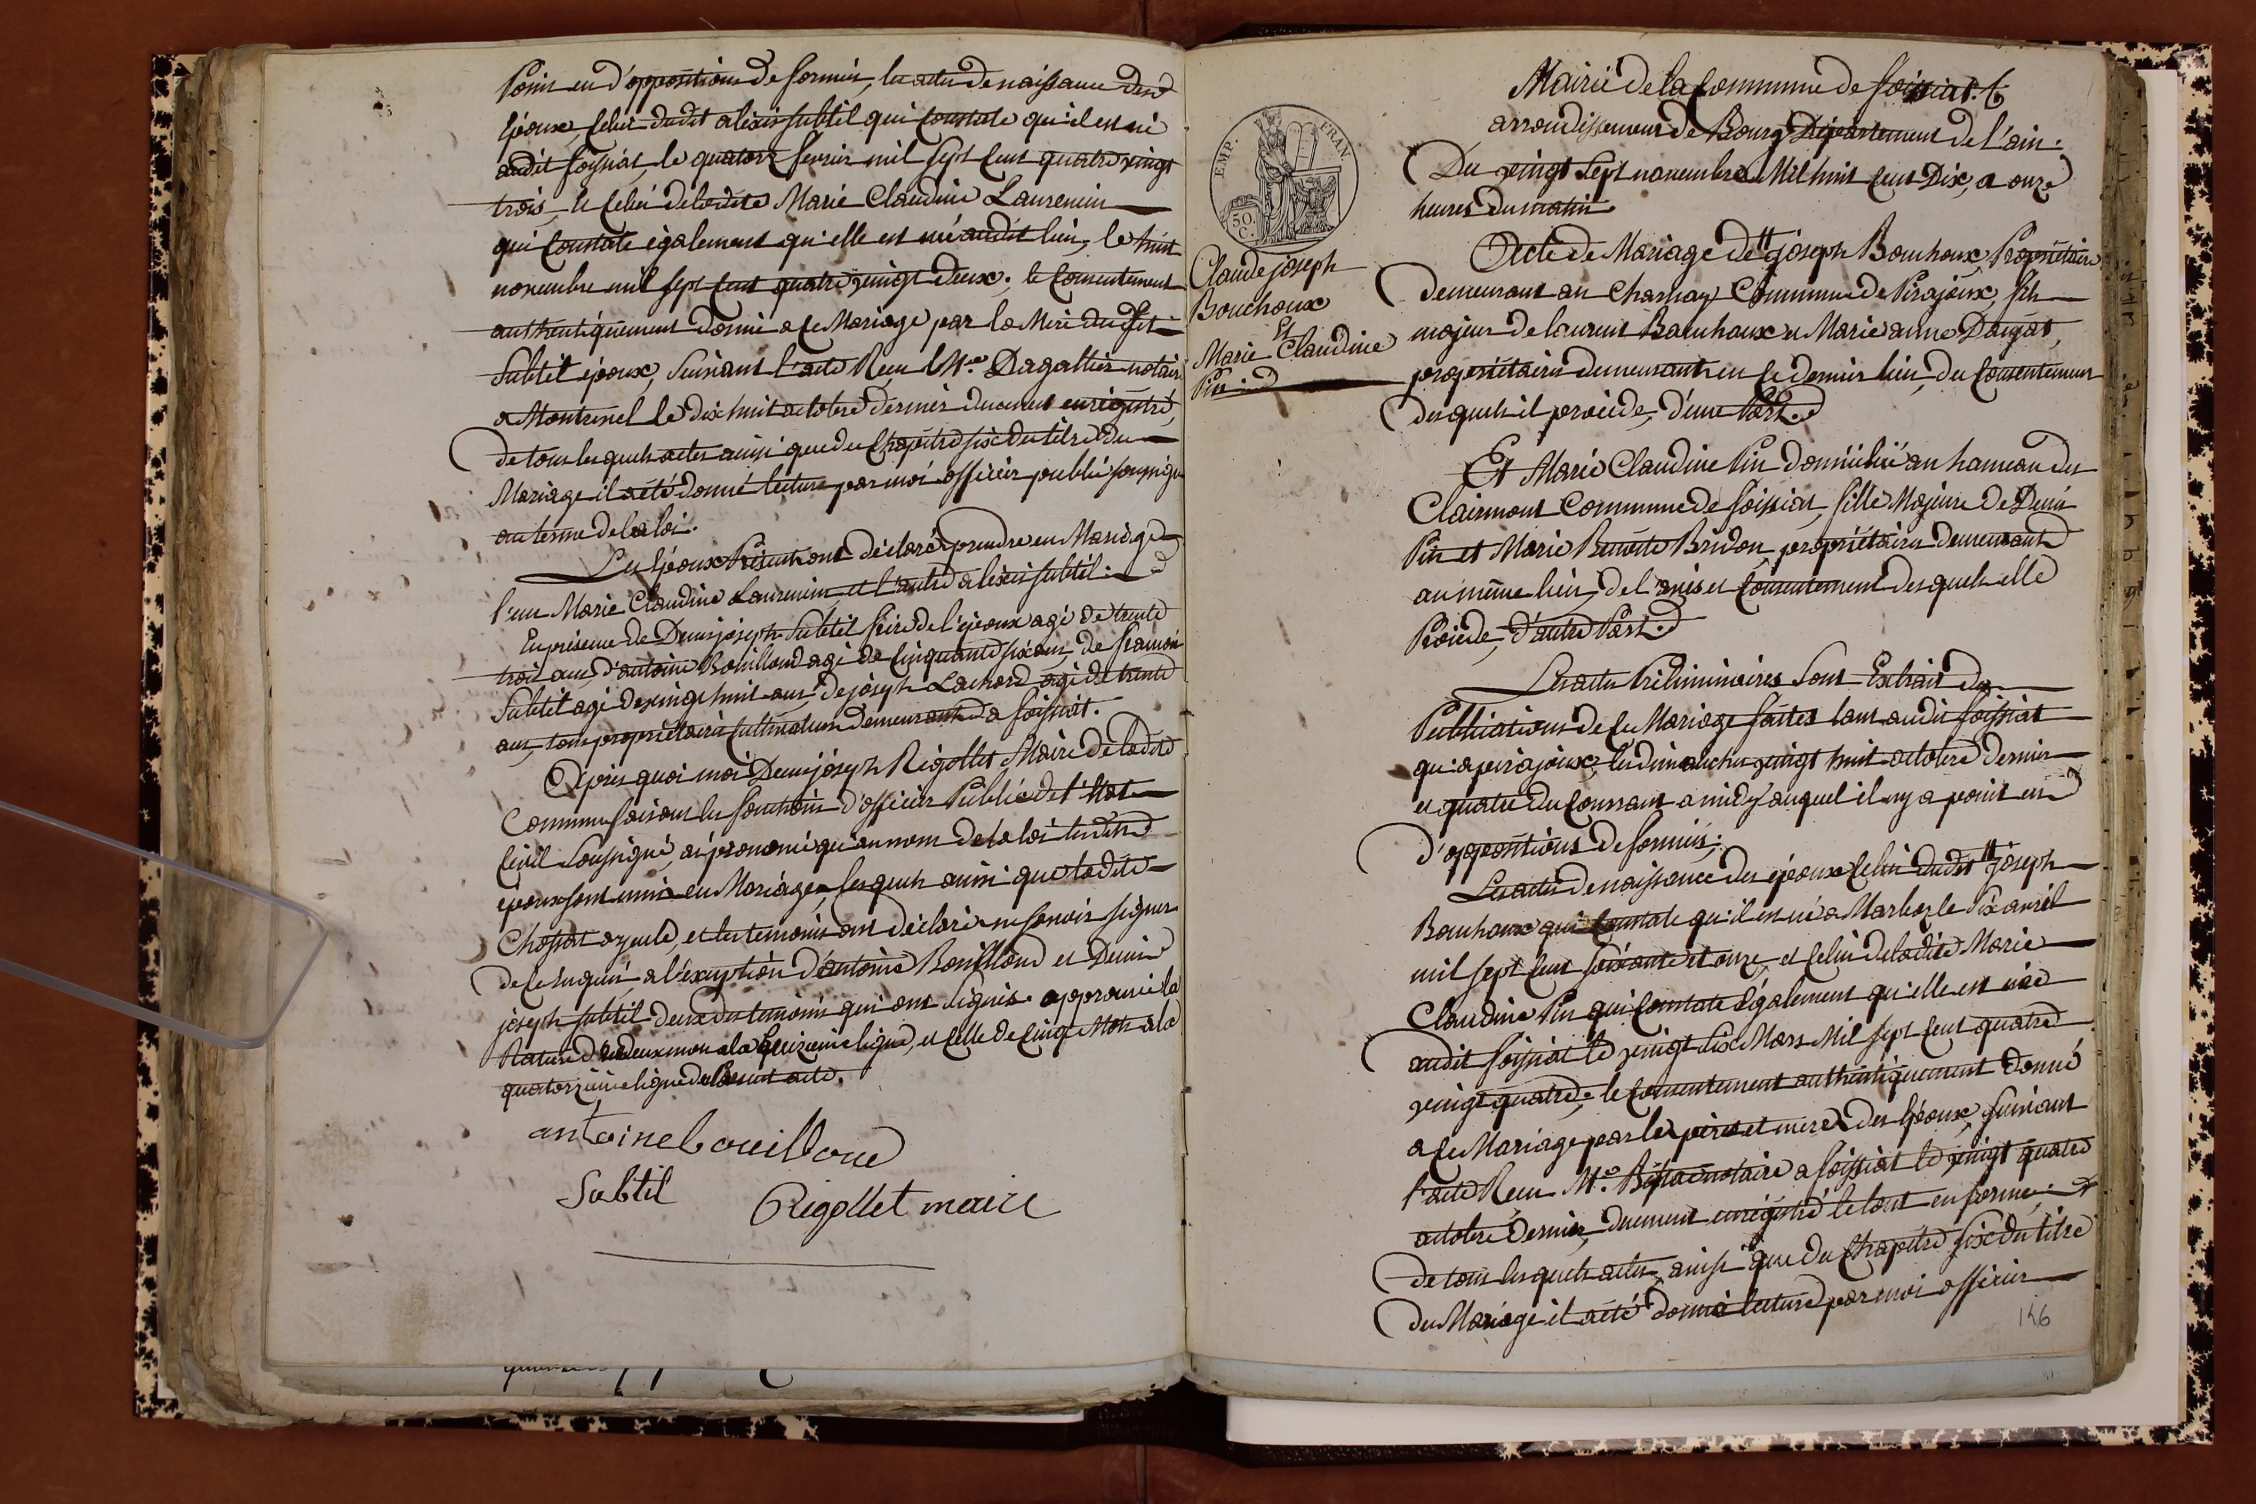 Point eu d'opposition de formée, les actes de naissance des d
Epoux, celui dudit alexis subtil qui Constate qu'il est né
audit foissiat, le quatorze fevrier mil sept Cent quatre vingt
trois, et Celui de ladite Marie Claudine Laurencin
qui Constate également qu'elle est née audit lieu, le huit
novembre mil sept Cent quatre vingt deux; le Consentement
authentiquement donné a ce Mariage par la Mere dudit
Subtil époux, suivant l'acte Recu Me. Dagallier notaire
a Montrevel le dix huit octobre dernier duement enrégistré,
de tous lesquels actes ainsi que du Chapitre six du titre du
Mariage il a été donné lecture par moi officier public soussigné
au terme de la loi.
Les Epoux Présents ont déclaré prendre en Mariage
l'un Marie Claudine Laurencin et l'autre alexis subtil.
En présence de Denis joseph Subtil frere de l'époux agé de trente
trois ans, d'antoine Bouilloud agé de Cinquante six ans, de francois
Subtil agé de vingt huit ans, de joseph Lachard agé de trente
ans, tous propriétaires Cultivateurs demeurants a foissiat.
Après quoi moi Denis joseph Rigollet Maire de ladite
Commune faisant les fonctions d'officier Public de l'état
Civil soussigné, ai prononcé qu'au nom de la loi lesdits
époux sont unis en Mariage, lesquels ainsi que ladite
Chossat ayeule, et les temoins ont déclaré ne savoir signer
de Ce requis a l'exception d'antoine Bouilloud et Denis
joseph subtil deux des temoins qui ont signés. approuvé la
Rature de deux mots a la quizieme ligne, et celle de Cinq Mots a la
quatorzieme ligne du Présent acte.
antoine bouilloud
Subtil Rigollet maire
Mairie de la Commune de foissiat.
arrondissement de Bourg Département de l'ain.
Du vingt sept novembre Mil huit Cent Dix, a onze
heures du matin
EMP. FRAN.
50. C.
Claude joseph
Bouchoux
Et
Marie Claudine
Pin
Acte de Mariage de joseph Bouchoux Propriétaire
demeurant au Charnay Commune de Pirajoux, fils
majeur de laurent Bouchoux et Marie anne Dangas,
propriétaires demeurants en ce dernier lieu, du Consentement
desquels il procéde, d'une Part.
Et Marie Claudine Pin domiciliée au hameau de
Clairmont Commune de foissiat, fille Majeure de Denis
Pin et Marie Benoite Bridon, propriétaires demeurants
au même lieu, de l'avis et Consentement desquels elle
Procéde, d'autre Part.
Les actes Préliminaires sont Extrait des
Publications de Ce Mariage faites tant audit foissiat
qu'a pirajoux, les dimanches vingt huit octobre dernier
et quatre du Courrant a midy auquel il n'y a point eu
d'oppositions de formées;
Les actes de naissance des époux Celui dudit joseph
Bouchoux qui Constate qu'il est né a Marboz le six avril
mil sept Cent soixante et onze, et Celui de ladite Marie
Claudine Pin qui Constate également qu'elle est née
audit foissiat le vingt six Mars Mil sept Cent quatre
vingt quatre; le Consentement authentiquement donné
a Ce Mariage par les peres et meres des Epoux, suivant
l'acte Recu Me. notaire a foissiat le vingt quatre
octobre dernier, duement enrégistré le tout en forme;
de tous lesquels actes, ainsi que du Chapitre six du titre
du Mariage il a été donné lecture par moi officier
146